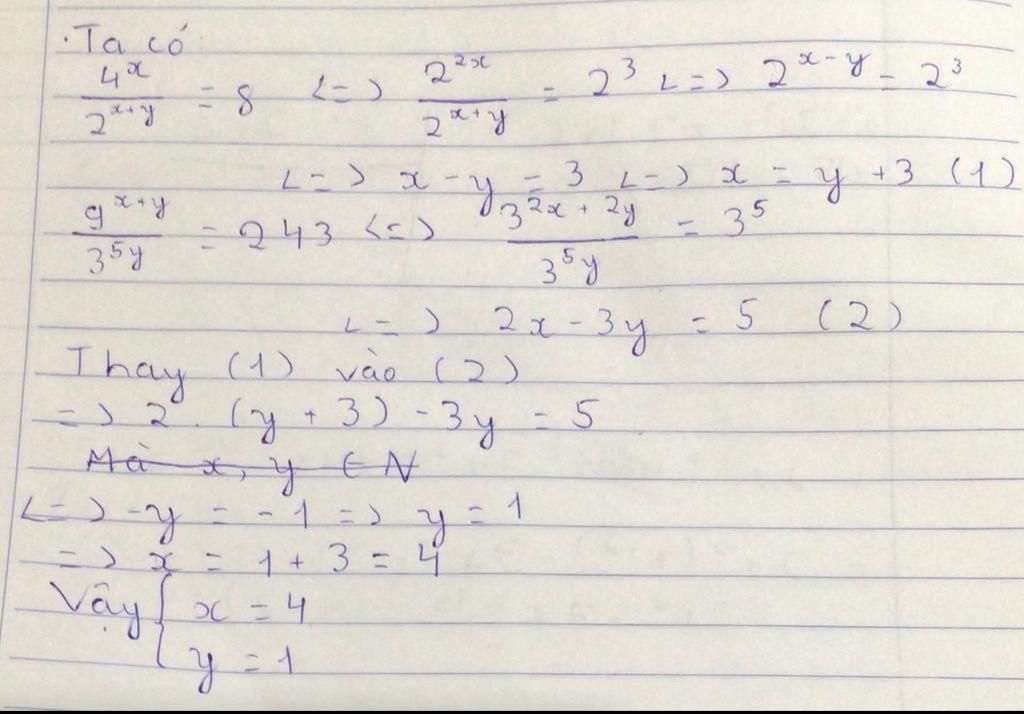 .Ta có
4^x / 2^{x+y} = 8 <=> 2^{2x} / 2^{x+y} = 2^3 <=> 2^{x-y} = 2^3
<=> x - y = 3 <=> x = y + 3 (1)
9^{x+y} / 3^{5y} = 243 <=> 3^{2x+2y} / 3^{5y} = 3^5
<=> 2x - 3y = 5 (2)
Thay (1) vào (2)
=> 2 . (y + 3) - 3y = 5
Mà x, y ∈ N
<=> -y = -1 => y = 1
=> x = 1 + 3 = 4
Vậy { x = 4
y = 1